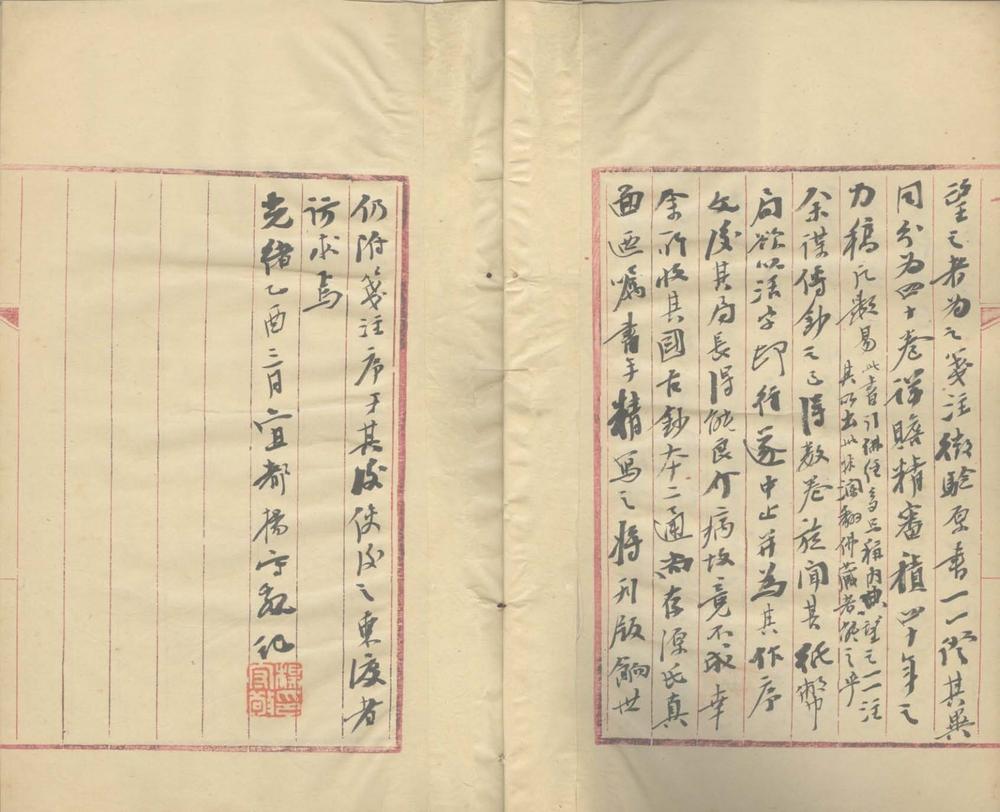 望之者為之箋注徵驗原書一一證其異
同分為四十卷詳贍精審積四十年之
力稿凡數易此書引佛經多只稱內典望之一一注
其所出此非淹翻佛藏者能之乎
余謀傳鈔之已得數卷旋聞其紙幣
局欲以活字印行遂中止并為其作序
文後其局長得能良介病故竟不成幸
余所收其國古鈔本二通尚存源氏真
面亟囑書手精寫之將刊版餉世
仍附箋注序于其後使後之東渡者
訪求焉
光緒乙酉三月宜都楊守敬記
楊印守敬